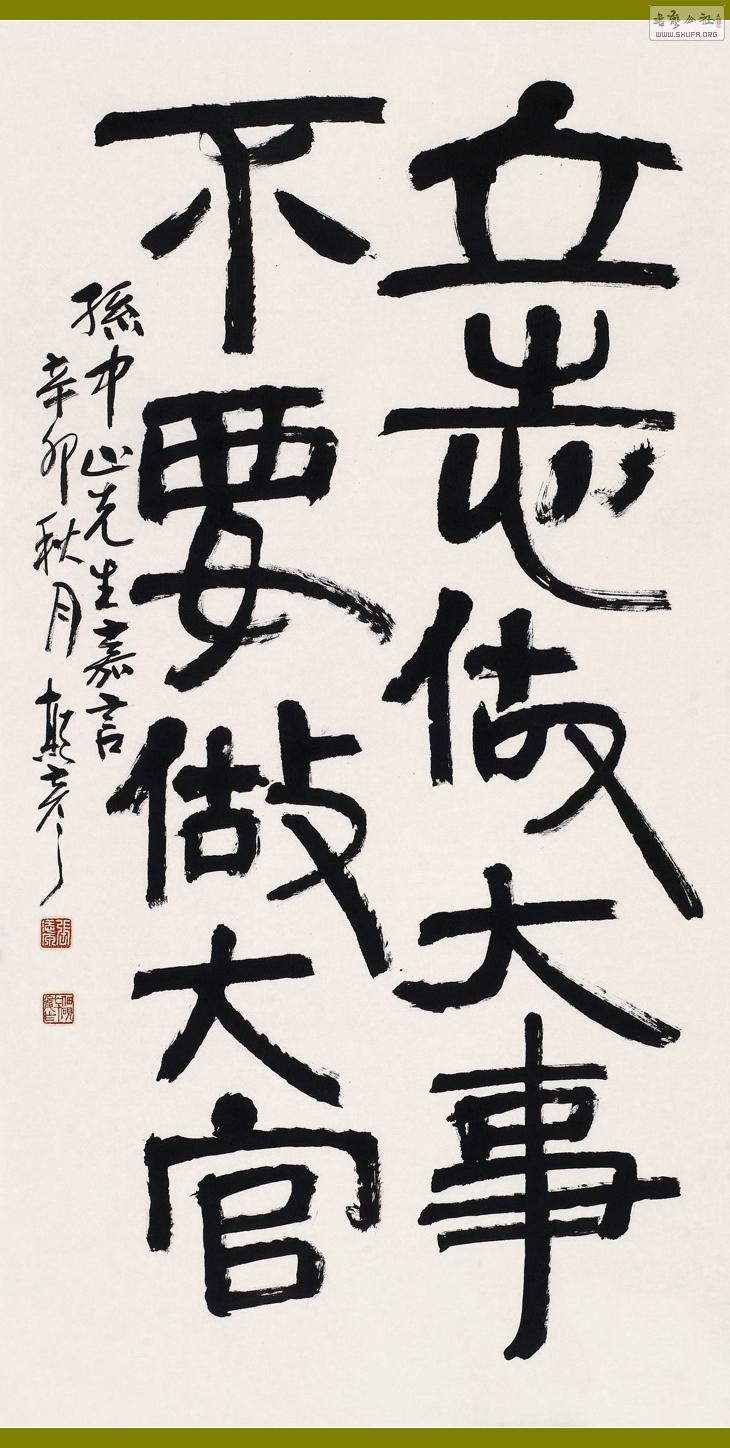 立志做大事
不要做大官
孫中山先生嘉言
辛卯秋月
WWW.SHUFA.ORG